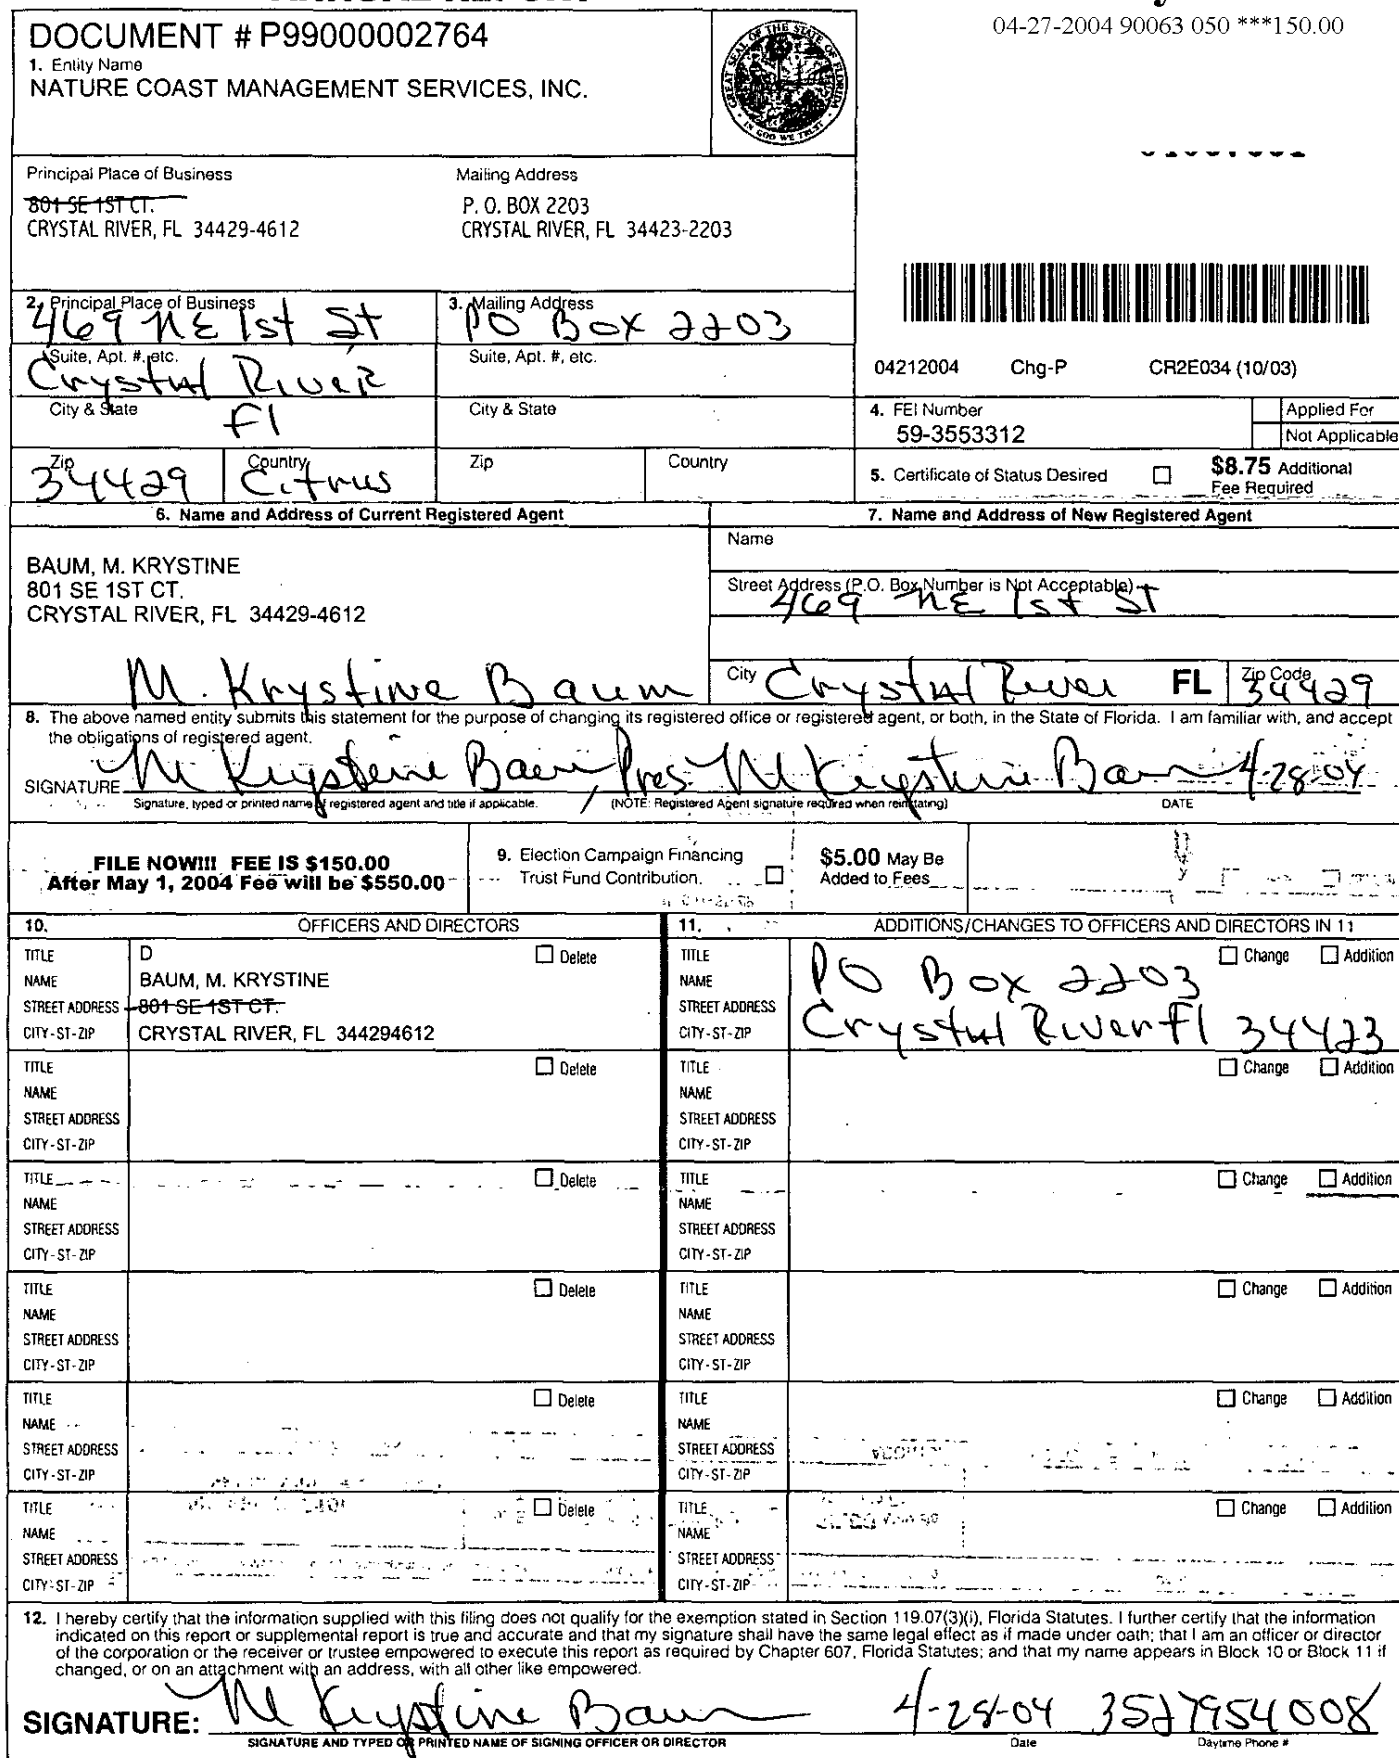 04-27-2004 90063 050 ***150.00
DOCUMENT # P99000002764
1. Entity Name
NATURE COAST MANAGEMENT SERVICES, INC.
GREAT SEAL OF THE STATE OF FLORIDA
IN GOD WE TRUST
Principal Place of Business
Mailing Address
801 SE 1ST CT.
P. O. BOX 2203
CRYSTAL RIVER, FL 34429-4612
CRYSTAL RIVER, FL 34423-2203
2. Principal Place of Business
469 NE 1st St
3. Mailing Address
PO Box 2203
Suite, Apt. #, etc.
Crystal River
Suite, Apt. #, etc.
04212004 Chg-P CR2E034 (10/03)
City & State
Fl
City & State
4. FEI Number
59-3553312
Applied For
Not Applicable
Zip
34429
Country
Citrus
Zip
Country
5. Certificate of Status Desired
$8.75 Additional
Fee Required
6. Name and Address of Current Registered Agent
7. Name and Address of New Registered Agent
BAUM, M. KRYSTINE
801 SE 1ST CT.
CRYSTAL RIVER, FL 34429-4612
M. Krystine Baum
Name
Street Address (P.O. Box Number is Not Acceptable)
469 NE 1st ST
City Crystal River FL Zip Code 34429
8. The above named entity submits this statement for the purpose of changing its registered office or registered agent, or both, in the State of Florida. I am familiar with, and accept
the obligations of registered agent.
SIGNATURE M Krystine Baum Pres M Krystine Baum 4-28-04
Signature, typed or printed name of registered agent and title if applicable. (NOTE: Registered Agent signature required when reinstating) DATE
FILE NOW!!! FEE IS $150.00
After May 1, 2004 Fee will be $550.00
9. Election Campaign Financing
Trust Fund Contribution.
$5.00 May Be
Added to Fees
10. OFFICERS AND DIRECTORS
11. ADDITIONS/CHANGES TO OFFICERS AND DIRECTORS IN 11
TITLE D Delete
NAME BAUM, M. KRYSTINE
STREET ADDRESS 801 SE 1ST CT.
CITY-ST-ZIP CRYSTAL RIVER, FL 344294612
TITLE Change Addition
NAME PO Box 2203
STREET ADDRESS
CITY-ST-ZIP Crystal River Fl 34423
TITLE Delete
NAME
STREET ADDRESS
CITY-ST-ZIP
TITLE Change Addition
NAME
STREET ADDRESS
CITY-ST-ZIP
TITLE Delete
NAME
STREET ADDRESS
CITY-ST-ZIP
TITLE Change Addition
NAME
STREET ADDRESS
CITY-ST-ZIP
TITLE Delete
NAME
STREET ADDRESS
CITY-ST-ZIP
TITLE Change Addition
NAME
STREET ADDRESS
CITY-ST-ZIP
TITLE Delete
NAME
STREET ADDRESS
CITY-ST-ZIP
TITLE Change Addition
NAME
STREET ADDRESS
CITY-ST-ZIP
TITLE Delete
NAME
STREET ADDRESS
CITY-ST-ZIP
TITLE Change Addition
NAME
STREET ADDRESS
CITY-ST-ZIP
12. I hereby certify that the information supplied with this filing does not qualify for the exemption stated in Section 119.07(3)(i), Florida Statutes. I further certify that the information
indicated on this report or supplemental report is true and accurate and that my signature shall have the same legal effect as if made under oath; that I am an officer or director
of the corporation or the receiver or trustee empowered to execute this report as required by Chapter 607, Florida Statutes; and that my name appears in Block 10 or Block 11 if
changed, or on an attachment with an address, with all other like empowered.
SIGNATURE: M Krystine Baum 4-28-04 3527954008
SIGNATURE AND TYPED OR PRINTED NAME OF SIGNING OFFICER OR DIRECTOR Date Daytime Phone #